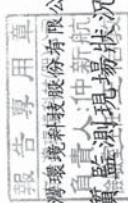 報告專用章
環境科技股份有限公
負責人仲新航
監測現場狀況